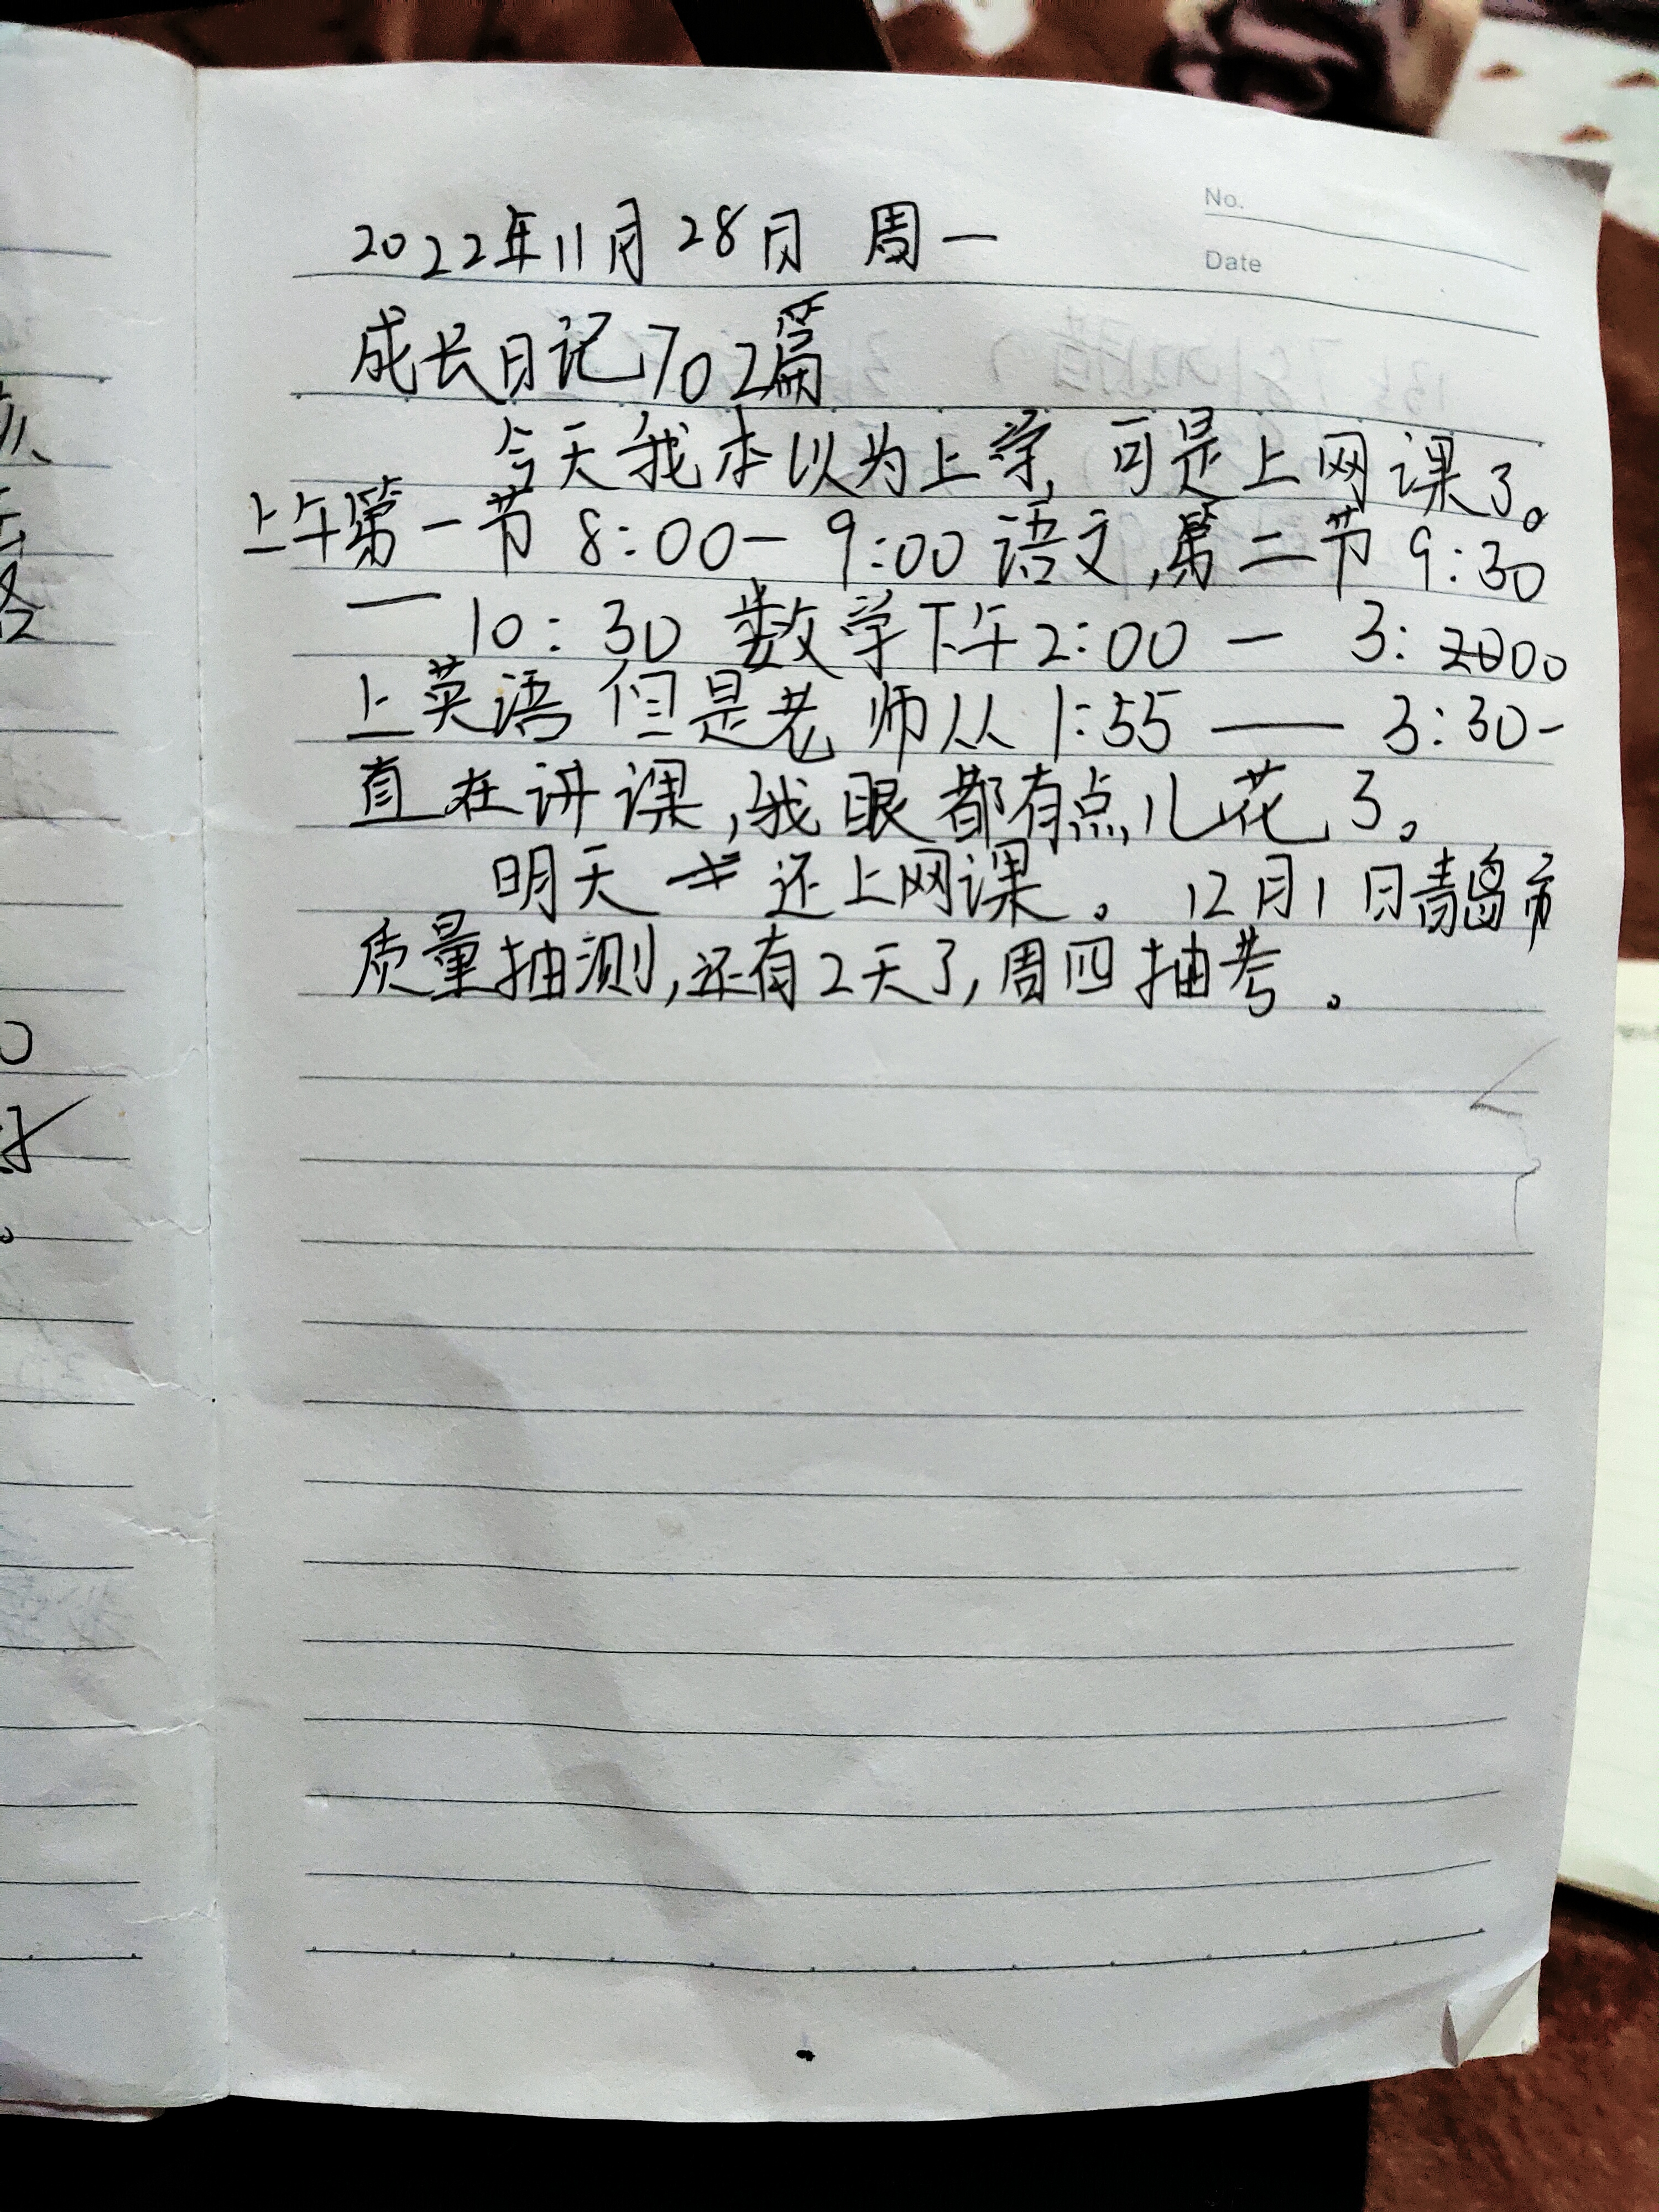 No.
Date
2022年11月28日 周一
成长日记702篇
今天我本以为上学,可是上网课了。
上午第一节 8:00—9:00语文,第二节9:30
—10:30 数学下午2:00 — 3:00
上英语 但是老师从1:55 —— 3:30一
直在讲课,我眼都有点儿花了。
明天 还上网课。12月1日青岛市
质量抽测,还有2天了,周四抽考。